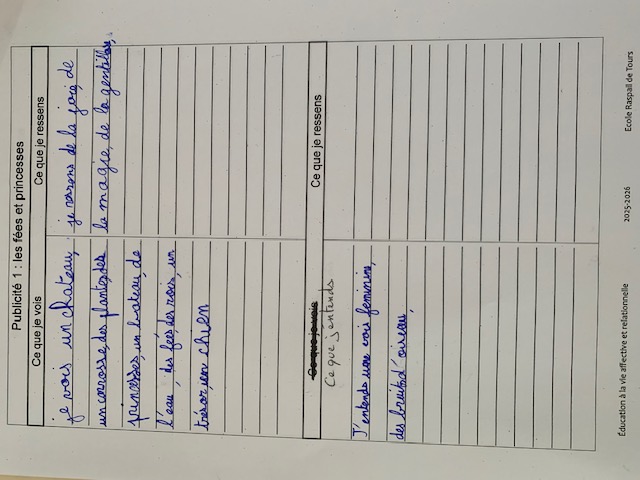 Publicité 1 : les fées et princesses
Ce que je vois
Ce que je ressens
je vois un chateau,
un carrosse, des plantes, des
princesses, un bateau, de
l'eau, des fées, des rois, un
trésor, un chien
je ressens de la joie, de
la magie, de la gentilles,
Ce que je vois
Ce que j'entends
Ce que je ressens
J'entends une voix feminin,
des bruit d'oiseau,
Éducation à la vie affective et relationnelle
2025-2026
Ecole Raspail de Tours